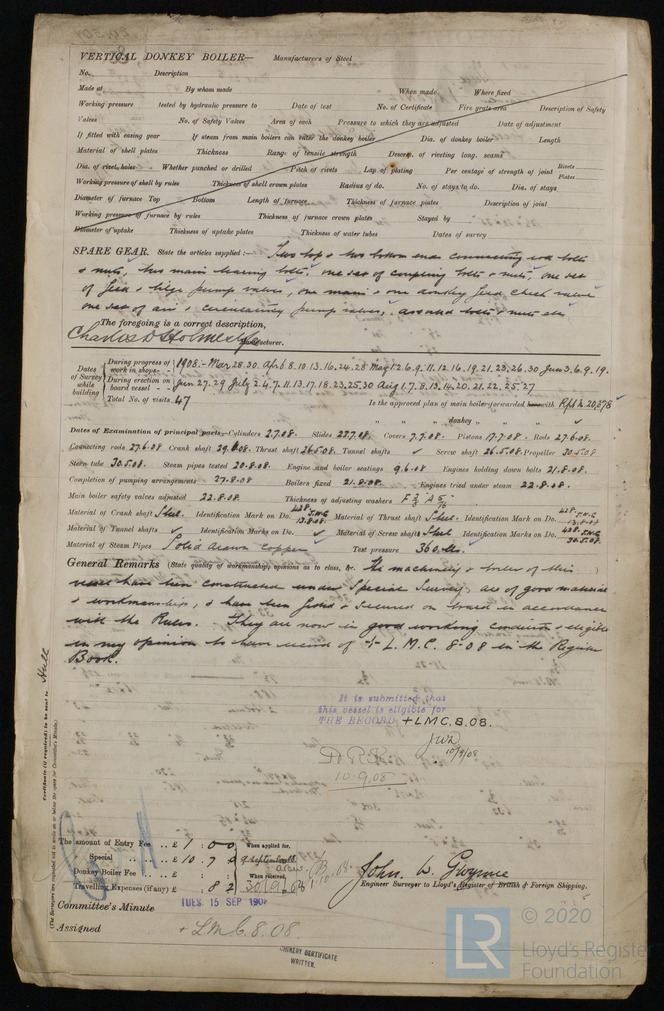 VERTICAL DONKEY BOILER— Manufacturers of Steel
No. Description
Made at By whom made When made Where fixed
Working pressure tested by hydraulic pressure to Date of test No. of Certificate Fire grate area Description of Safety
Valves No. of Safety Valves Area of each Pressure to which they are adjusted Date of adjustment
If fitted with easing gear If steam from main boilers can enter the donkey boiler Dia. of donkey boiler Length
Material of shell plates Thickness Range of tensile strength Descrip. of riveting long. seams
Dia. of rivet holes Whether punched or drilled Pitch of rivets Lap of plating Per centage of strength of joint Rivets Plates
Working pressure of shell by rules Thickness of shell crown plates Radius of do. No. of stays to do. Dia. of stays
Diameter of furnace Top Bottom Length of furnace Thickness of furnace plates Description of joint
Working pressure of furnace by rules Thickness of furnace crown plates Stayed by
Diameter of uptake Thickness of uptake plates Thickness of water tubes Dates of survey
SPARE GEAR. State the articles supplied:— Two top & two bottom end connecting rod bolts
& nuts, two main bearing bolts, one set of coupling bolts & nuts, one set
of feed & bilge pump valves, one main & one donkey feed check valve
one set of air & circulating pump valves, assorted bolts & nuts etc
The foregoing is a correct description,
Charles D Holmes & Co Manufacturer.
Dates of Survey while building
During progress of work in shops— 1908:- Mar 28.30. Apr 6.8.10.13.16.24.28 May 1.2.6.9.11.12.16.19.21.23.26.30 Jun 3.6.9.19.
During erection on board vessel— Jun 27.29 July 2.4.7.11.13.17.18.23.25.30 Aug 1.7.8.13.14.20.21.22.25.27
Total No. of visits 47 Is the approved plan of main boiler forwarded herewith Rpt 20,878
" " " donkey " "
Dates of Examination of principal parts—Cylinders 2.7.08. Slides 22.7.08. Covers 7.7.08. Pistons 17.7.08. Rods 27.6.08.
Connecting rods 27.6.08 Crank shaft 29.6.08. Thrust shaft 26.5.08. Tunnel shafts ✓ Screw shaft 26.5.08. Propeller 30.5.08
Stern tube 30.5.08 Steam pipes tested 20.8.08. Engine and boiler seatings 9.6.08 Engines holding down bolts 21.8.08.
Completion of pumping arrangements 27.8.08 Boilers fixed 21.8.08. Engines tried under steam 22.8.08.
Main boiler safety valves adjusted 22.8.08. Thickness of adjusting washers
Material of Crank shaft Steel Identification Mark on Do. 428 J.W.G 13.8.08 Material of Thrust shaft Steel. Identification Mark on Do. 428 J.W.G 13.8.08
Material of Tunnel shafts ✓ Identification Marks on Do. ✓ Material of Screw shafts Steel Identification Marks on Do. 428 J.W.G 30.5.08.
Material of Steam Pipes Solid drawn copper Test pressure 360 lbs.
General Remarks (State quality of workmanship, opinions as to class, &c. The machinery & boiler of this
vessel have been constructed under Special Survey, are of good material
& workmanship, & have been fitted & secured on board in accordance
with the Rules. They are now in good working condition & eligible
in my opinion to have record of + L.M.C. 8-08 in the Register
Book.
It is submitted that
this vessel is eligible for
THE RECORD +LMC.8.08.
10/9/08
10.9.08
Certificate (if required) to be sent to Hull
(The Surveyors are requested not to write on or below the space for Committee's Minute.)
The amount of Entry Fee .. £ 1 : 0 : 0 When applied for,
Special .. £ 10 . 7 : 9 September
Donkey Boiler Fee .. £ : : When received,
Travelling Expenses (if any) £ : 8 : 2 30/9/08 1.10.08
John W. Gwynne
Engineer Surveyor to Lloyd's Register of British & Foreign Shipping.
Committee's Minute TUES. 15 SEP 1908
Assigned + L.M.C. 8.08.
MACHINERY CERTIFICATE
WRITTEN.
LR © 2020
Lloyd's Register
Foundation